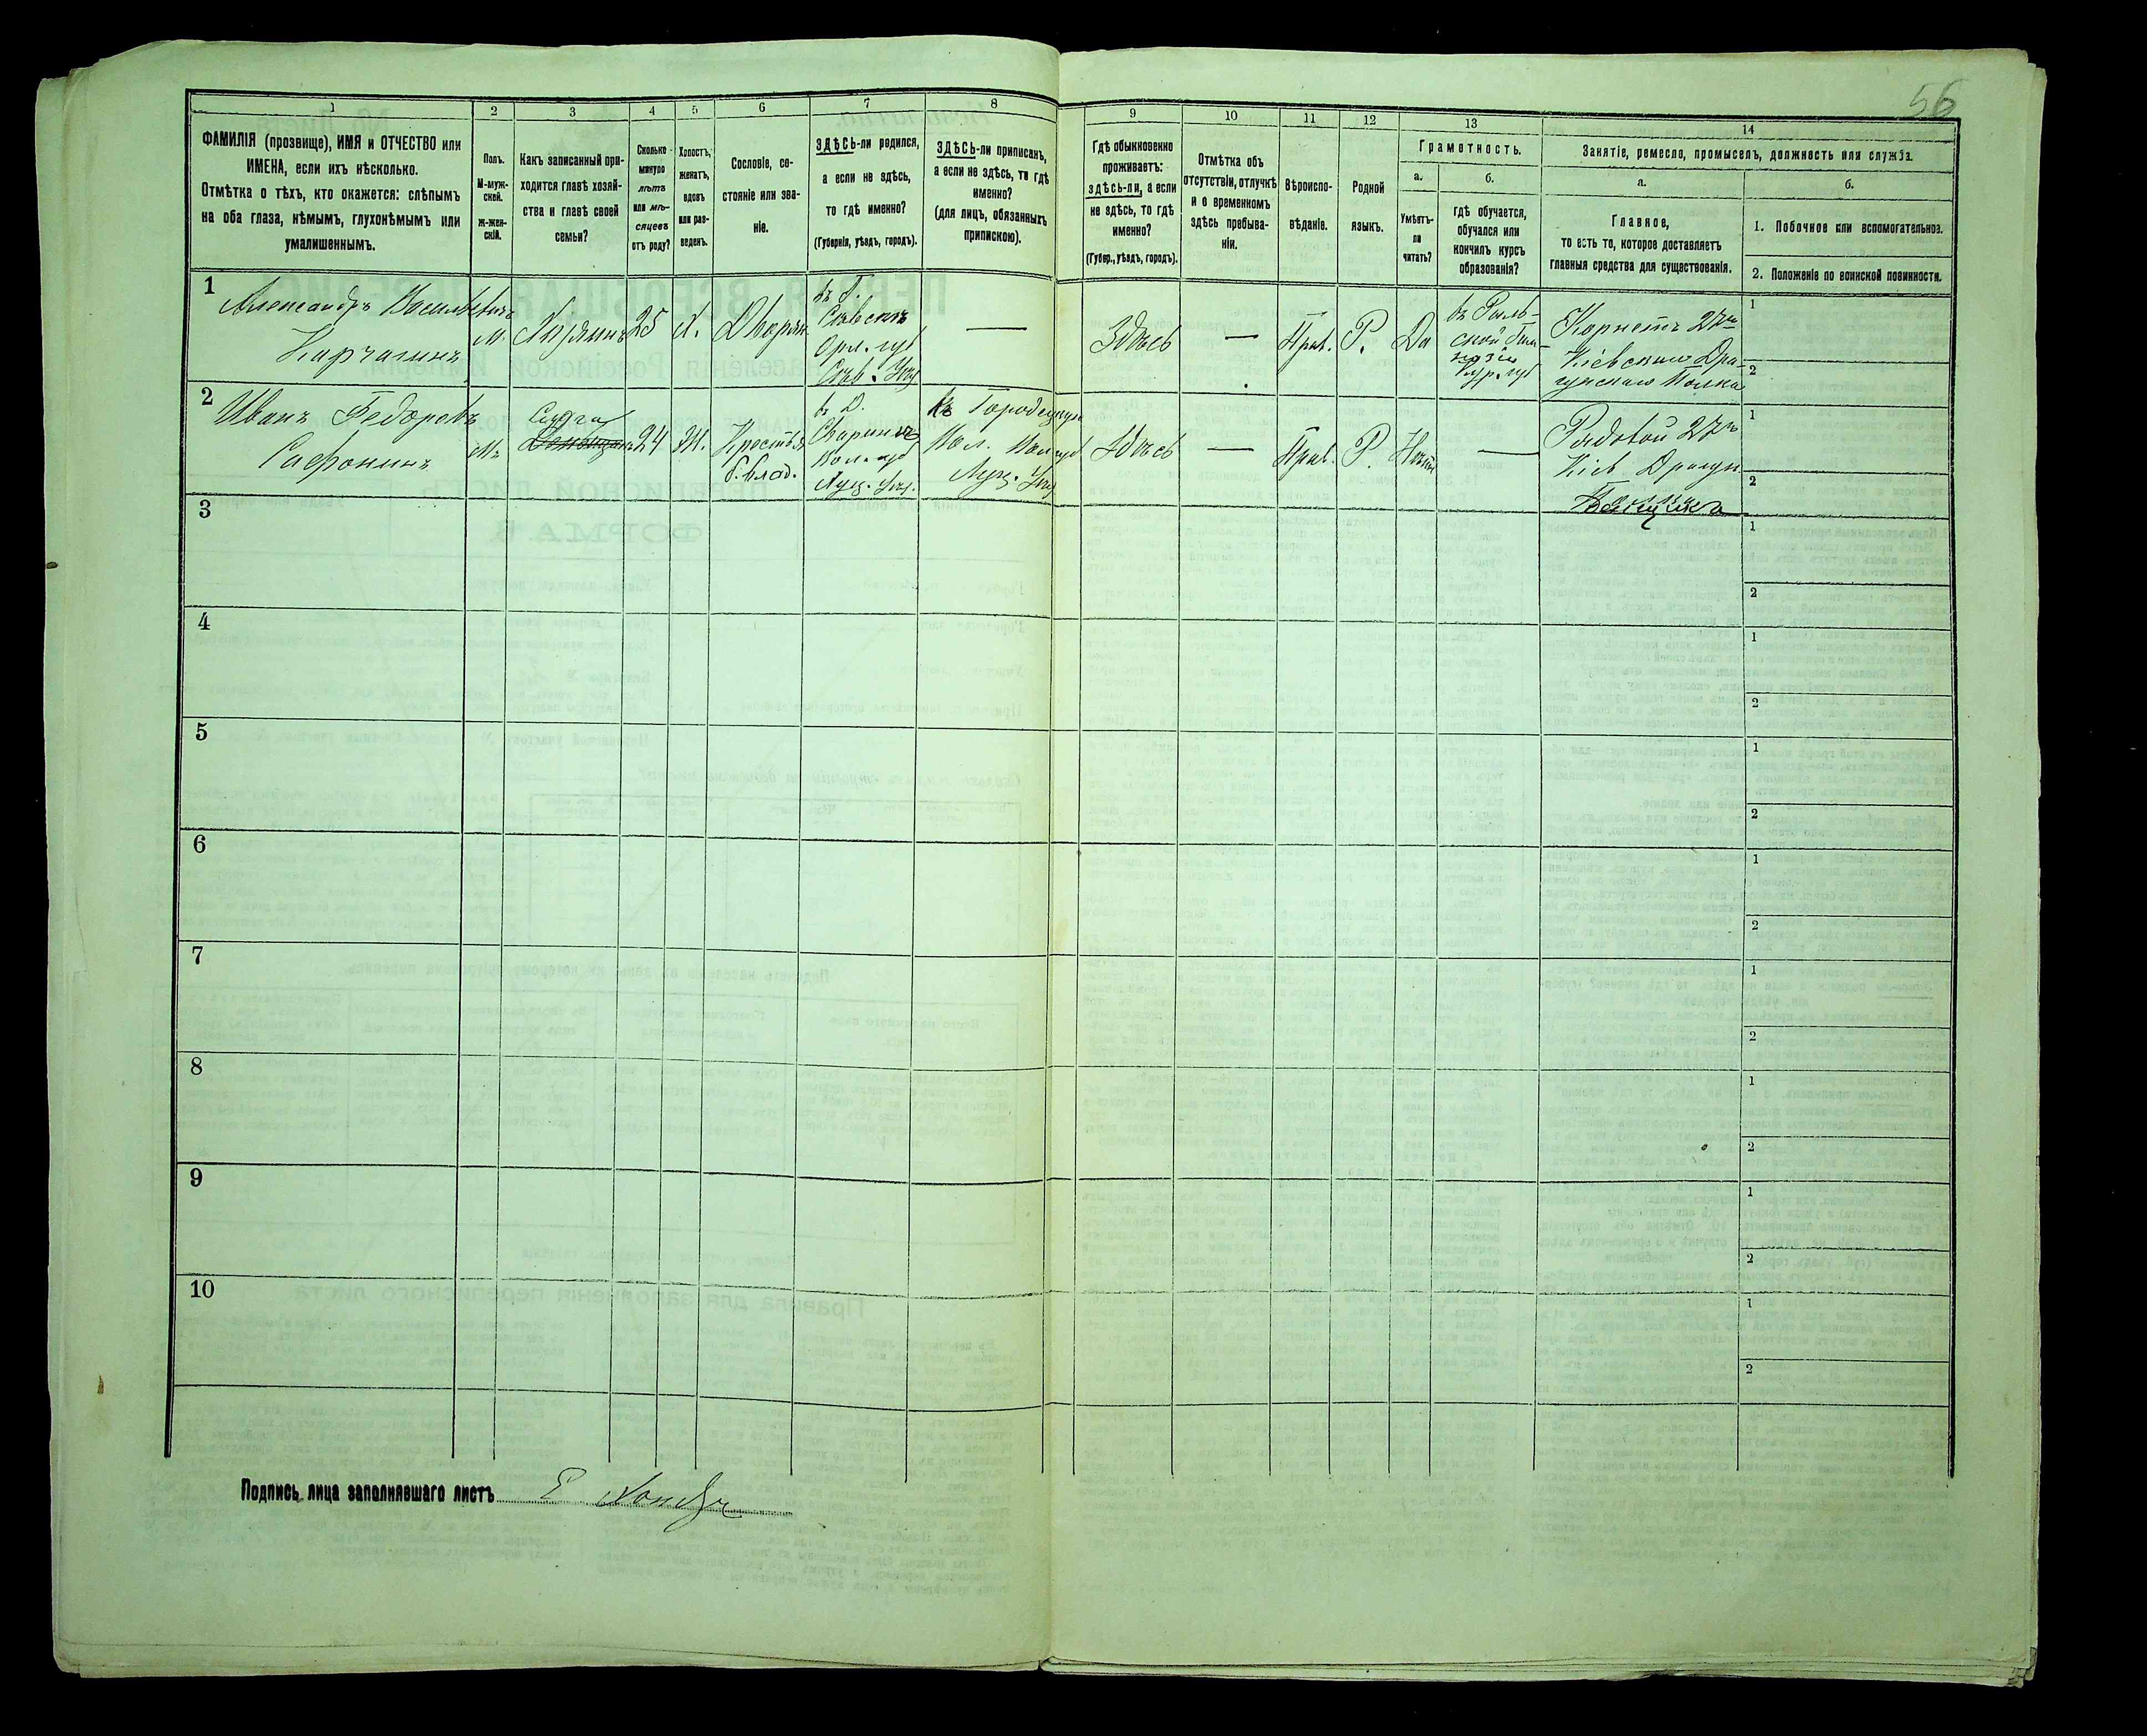 56
1
2
3
4
5
6
7
8
9
10
11
12
13
14
ФАМИЛІЯ (прозвище), ИМЯ и ОТЧЕСТВО или
ИМЕНА, если ихъ нѣсколько.
Отмѣтка о тѣхъ, кто окажется: слѣпымъ
на оба глаза, нѣмымъ, глухонѣмымъ или
умалишеннымъ.
Полъ.
М-муж-
ской.
Ж-жен-
скій.
Какъ записанный при-
ходится главѣ хозяй-
ства и главѣ своей
семьи?
Сколько
минуло
лѣтъ
или мѣ-
сяцевъ
отъ роду?
Холостъ,
женатъ,
вдовъ
или раз-
веденъ.
Сословіе, со-
стояніе или зва-
ніе.
ЗДѢСЬ-ли родился,
а если не здѣсь,
то гдѣ именно?
(Губернія, уѣздъ, городъ).
ЗДѢСЬ-ли приписанъ,
а если не здѣсь, то гдѣ
именно?
(для лицъ, обязанныхъ
припискою).
Гдѣ обыкновенно
проживаетъ:
здѣсь-ли, а если
не здѣсь, то гдѣ
именно?
(Губер., уѣздъ, городъ).
Отмѣтка объ
отсутствіи, отлучкѣ
и о временномъ
здѣсь пребыва-
ніи.
Вѣроиспо-
вѣданіе.
Родной
языкъ.
Грамотность.
а.
Умѣетъ-
ли
читать?
б.
гдѣ обучается,
обучался или
кончилъ курсъ
образованія?
Занятіе, ремесло, промыселъ, должность или служба.
а.
Главное,
то есть то, которое доставляетъ
главныя средства для существованія.
б.
1. Побочное или вспомогательное.
2. Положеніе по воинской повинности.
1
Александръ Васильевичъ
Карчагинъ
М.
Хозяинъ
25
Х.
Дворян
въ Г.
Сѣвскѣ
Орл. губ
Сѣв. Уѣз
—
Здѣсь
—
Прав.
Р.
Да
въ Рыль-
ской Гим-
назіи
Кур. губ
Корнетъ 27го
Кіевскаго Дра-
гунскаго Полка
1
2
2
Иванъ Федоровъ
Сафонинъ
М.
24
Ж.
Крестья
б. влад.
въ Д.
Вол. губ
Луц. уѣз.
Вол. губ
Луц. Уѣз
Здѣсь
—
Прав.
Р.
Нѣтъ
—
Рядовой 27го
Кіев Драгун
1
2
3
1
2
4
1
2
5
1
2
6
1
2
7
1
2
8
1
2
9
1
2
10
1
2
Подпись лица заполнявшаго листъ